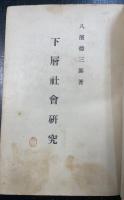 八濱德三郎著
下層社會硏究